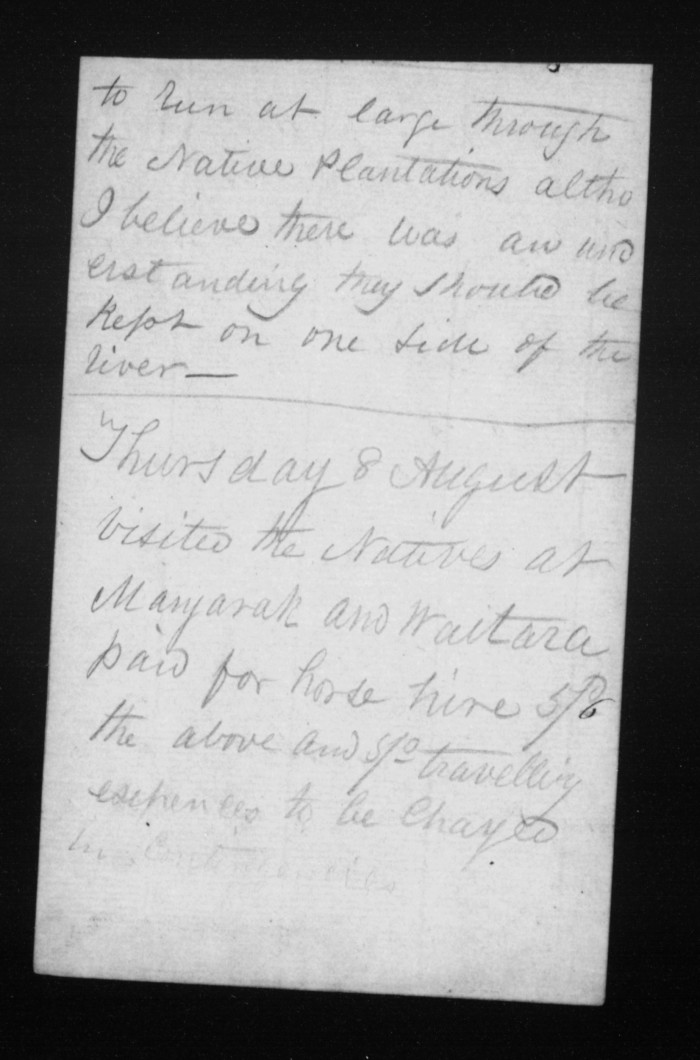 to run at large through
the Native Plantations altho
I believe there was an und
erstanding they should be
kept on one side of the
river —
Thursday 8 August
visited the Natives at
and Waitara
paid for horse hire
the above and 5/0 travelling
expences to be Charged
in Contingencies